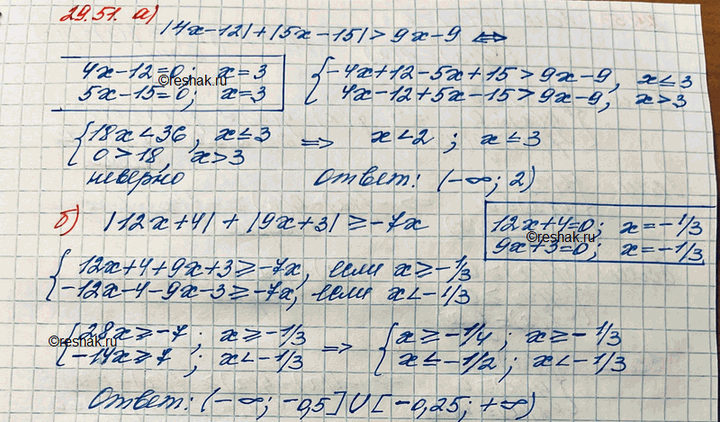 29.51. а)
|4x-12|+|5x-15|>9x-9 ⇔
4x-12=0; x=3
5x-15=0; x=3
©reshak.ru
{-4x+12-5x+15>9x-9, x≤3
4x-12+5x-15>9x-9, x>3
{18x<36, x≤3
0>18, x>3
неверно
⇒ x<2; x≤3
Ответ: (-∞; 2)
б) |12x+4|+|9x+3|≥-7x
12x+4=0; x=-1/3
9x+3=0; x=-1/3
©reshak.ru
{12x+4+9x+3≥-7x, если x≥-1/3
-12x-4-9x-3≥-7x, если x<-1/3
{28x≥-7; x≥-1/3
-14x≥7; x<-1/3
©reshak.ru
⇒ {x≥-1/4; x≥-1/3
x≤-1/2; x<-1/3
Ответ: (-∞; -0,5]∪[-0,25; +∞)